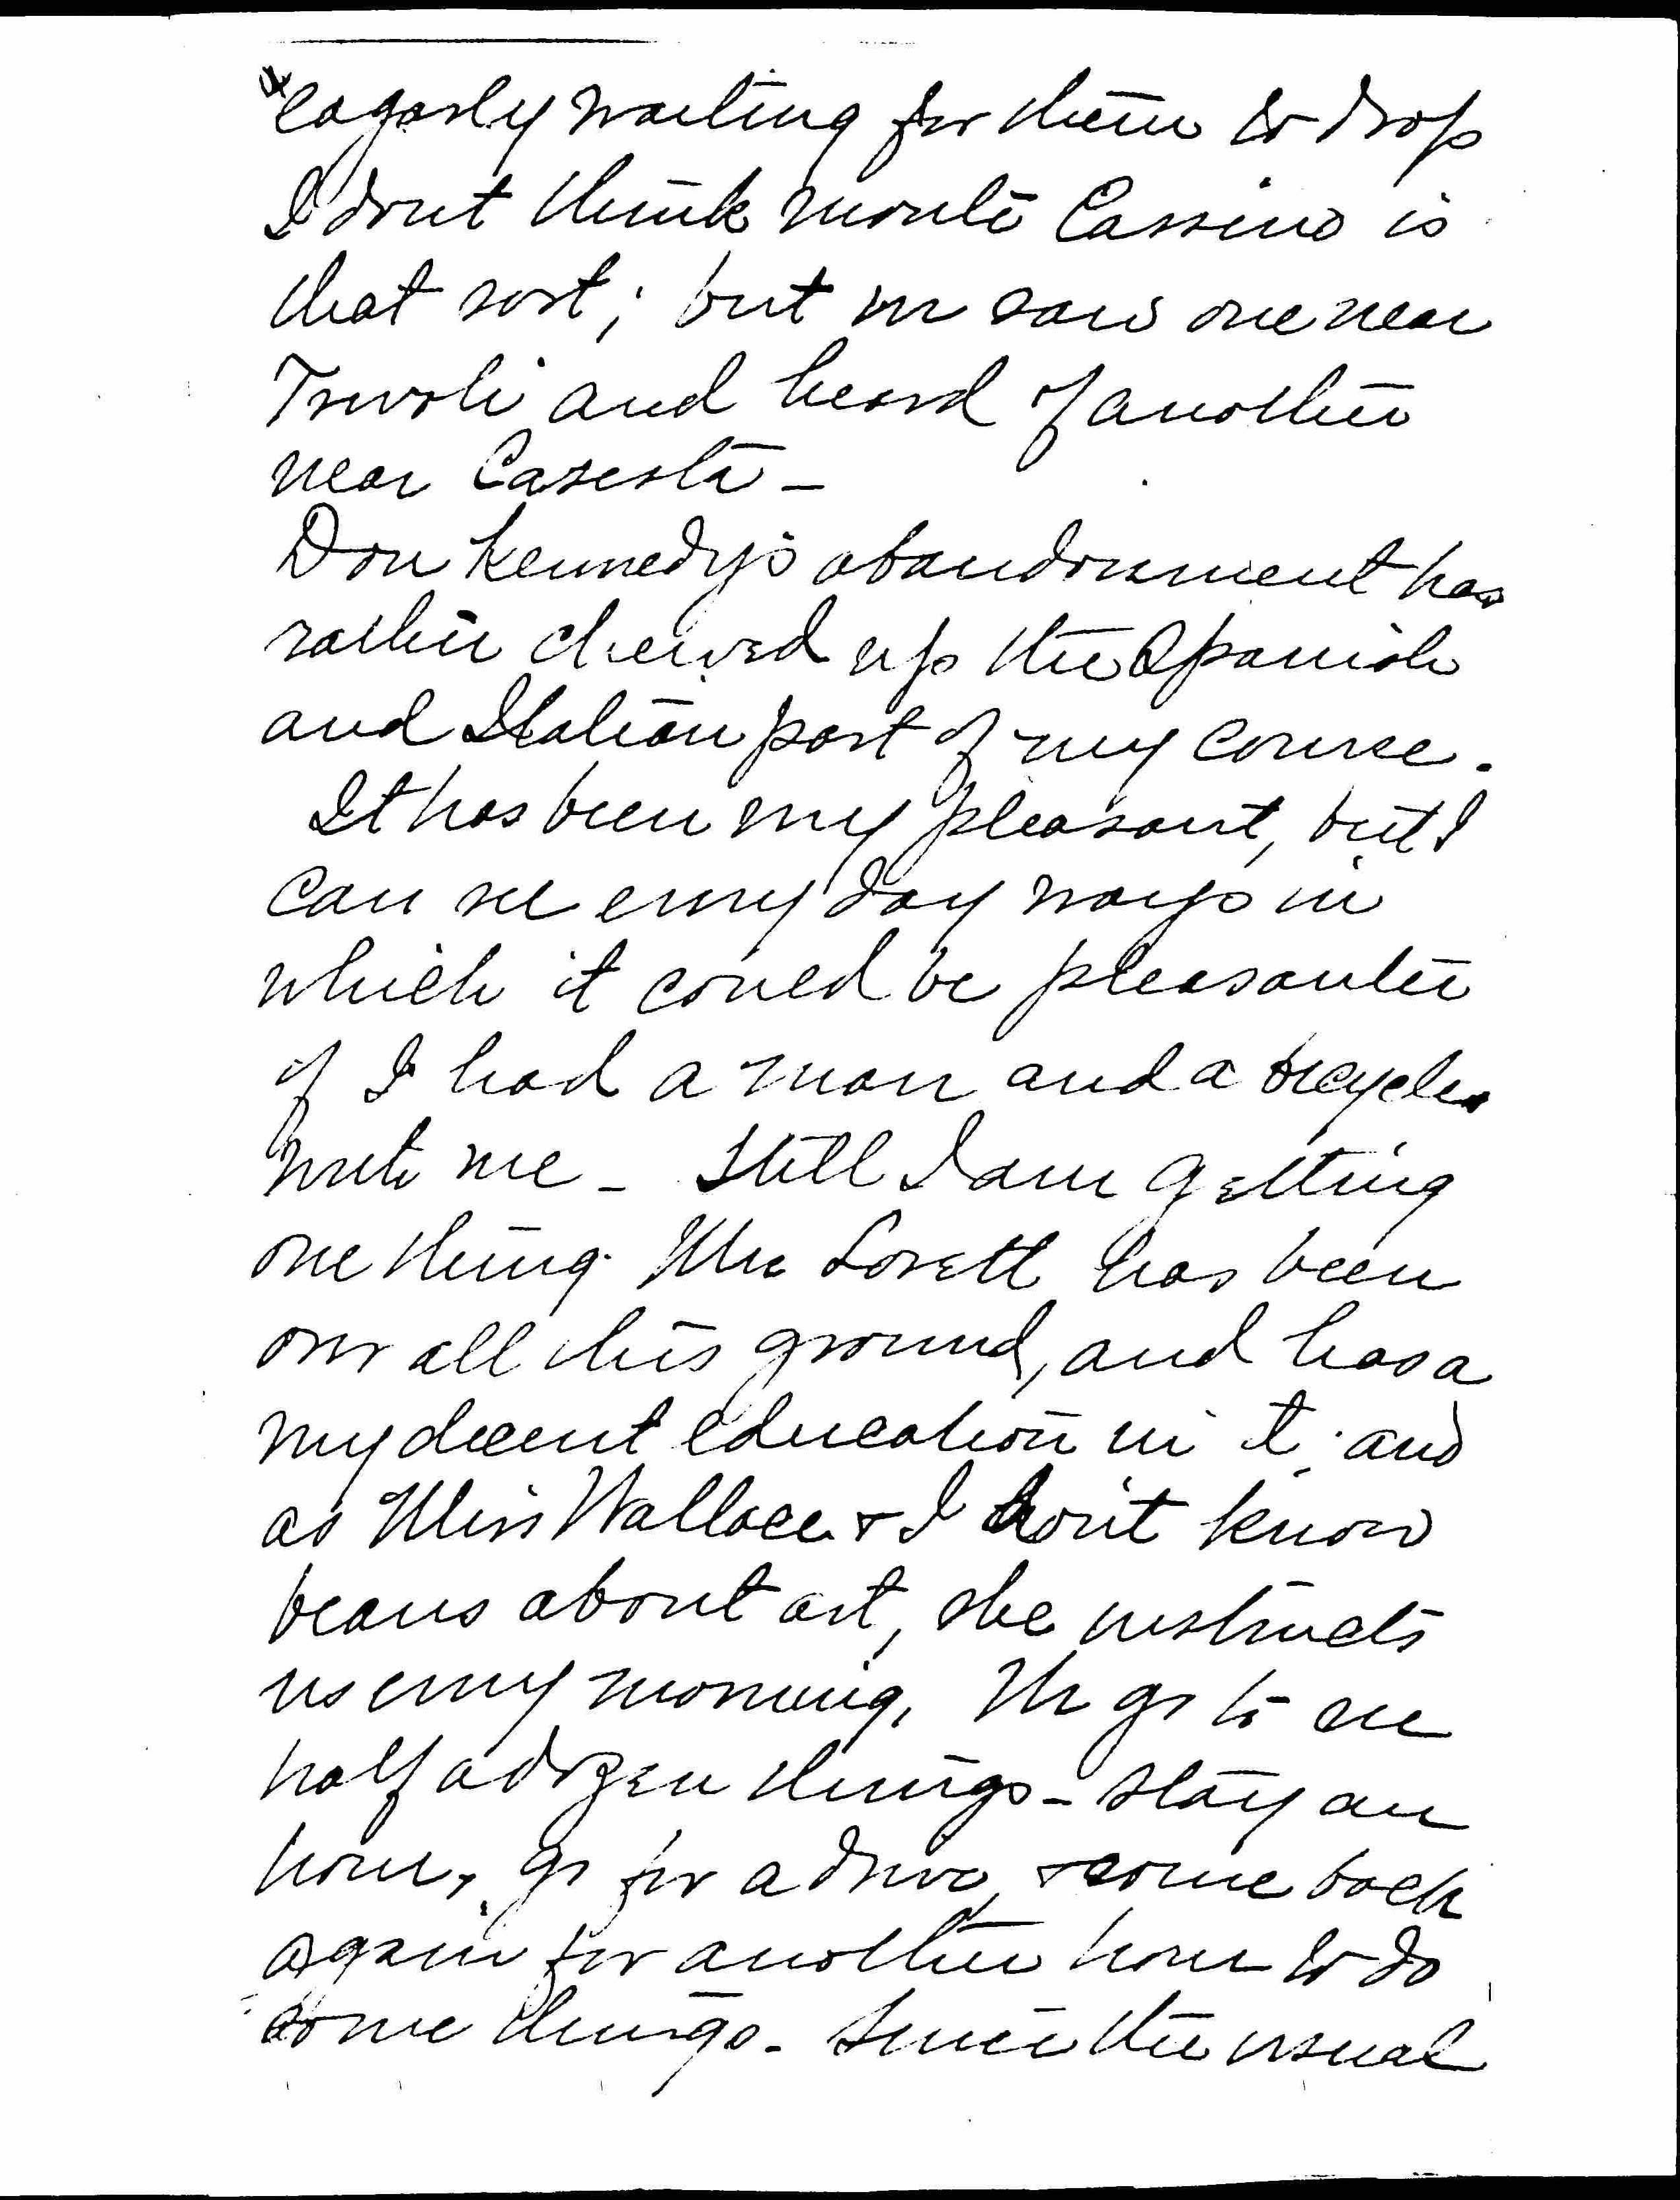 eagerly waiting for them to drop
I dont think Monte Cassino is
that sort; but we saw one near
Tivoli and heard of another
near Caserta -
Don Kennedy's abandonment has
rather chewed up the Spanish
and Italian part of my course.
It has been very pleasant, but I
can see every day ways in
which it could be pleasanter
if I had a man and a bicycle
with me - Still I am getting
one thing. Mrs Lovett has been
over all this ground, and has a
very decent education in it; and
as Miss Wallace & I don't know
beans about art, she instructs
us every morning. We go to see
half a dozen things - stay an
hour, go for a drive, & come back
again for another hour to do
some things. Since the usual